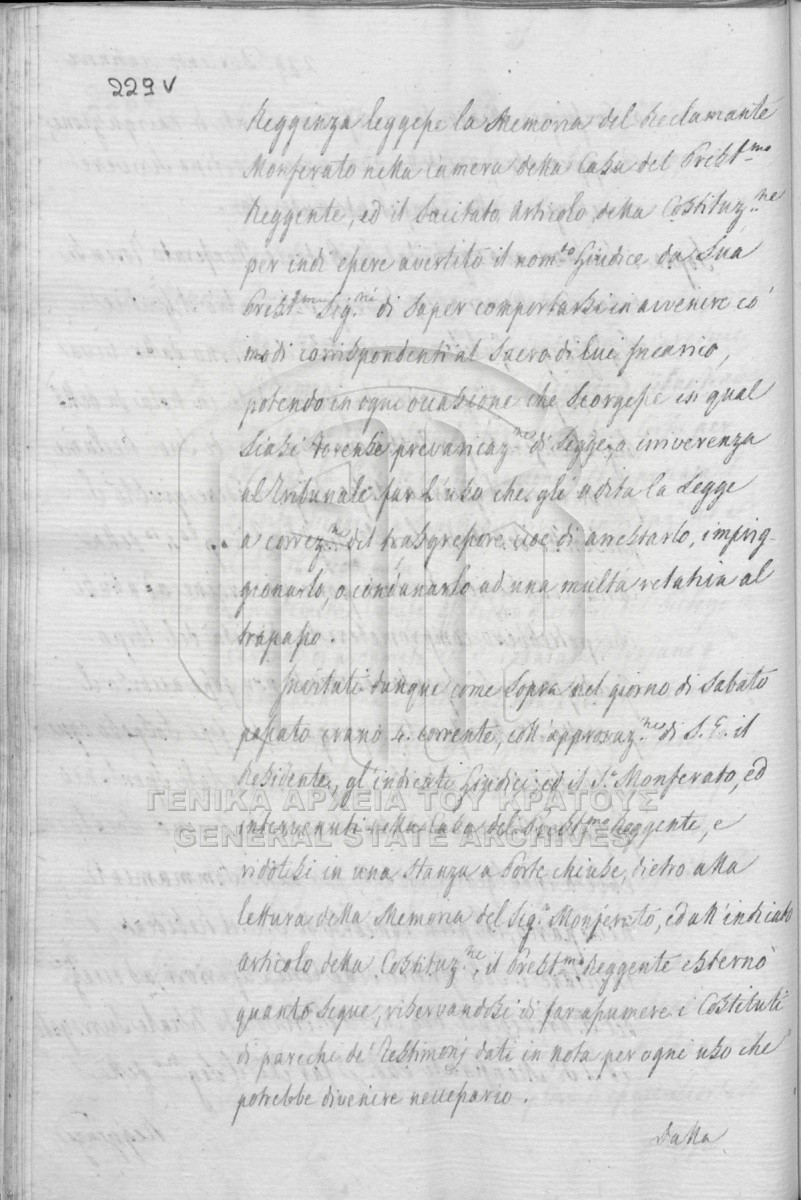 229v
Reggenza leggesse la Memoria del Reclamante
Monferato nella Camera della Casa del Prest.mo
Reggente, ed il sucitato Articolo della Costituz.ne
per indi essere avertito il nom.to Giudice da Sua
Prest.ma Sig.ria di saper comportarsi in avvenire co'
modi corrispondenti al Sacro di lui Incarico,
potendo in ogni occasione che scorgesse in qual
siasi Forense prevaricaz.ne di Legge, o inriverenza
al Tribunale far l'uso che gl'adita la Legge
a correz.ne del trasgressore cioè di arrestarlo, imprig-
gionarlo, o condanarlo ad una multa relativa al
trapasso.
Invitati dunque come sopra nel giorno di Sabato
passato erano 4. corrente, coll'approvaz.ne di S. E. il
Residente, gl'indicati Giudici, ed il S.r Monferato, ed
intervenuti nella Casa del Prest.mo Reggente, e
ridotisi in una stanza a Porte chiuse, dietro alla
lettura della Memoria del Sig.r Monferato, ed all'indicato
articolo della Costituz.ne, il Prest.mo Reggente esternò
quanto segue, riservandosi di far assumere i Costituti
di parechi de' Testimonj dati in nota per ogni uso che
potrebbe divenire necessario.
Dalla
ΓΕΝΙΚΑ ΑΡΧΕΙΑ ΤΟΥ ΚΡΑΤΟΥΣ
GENERAL STATE ARCHIVES